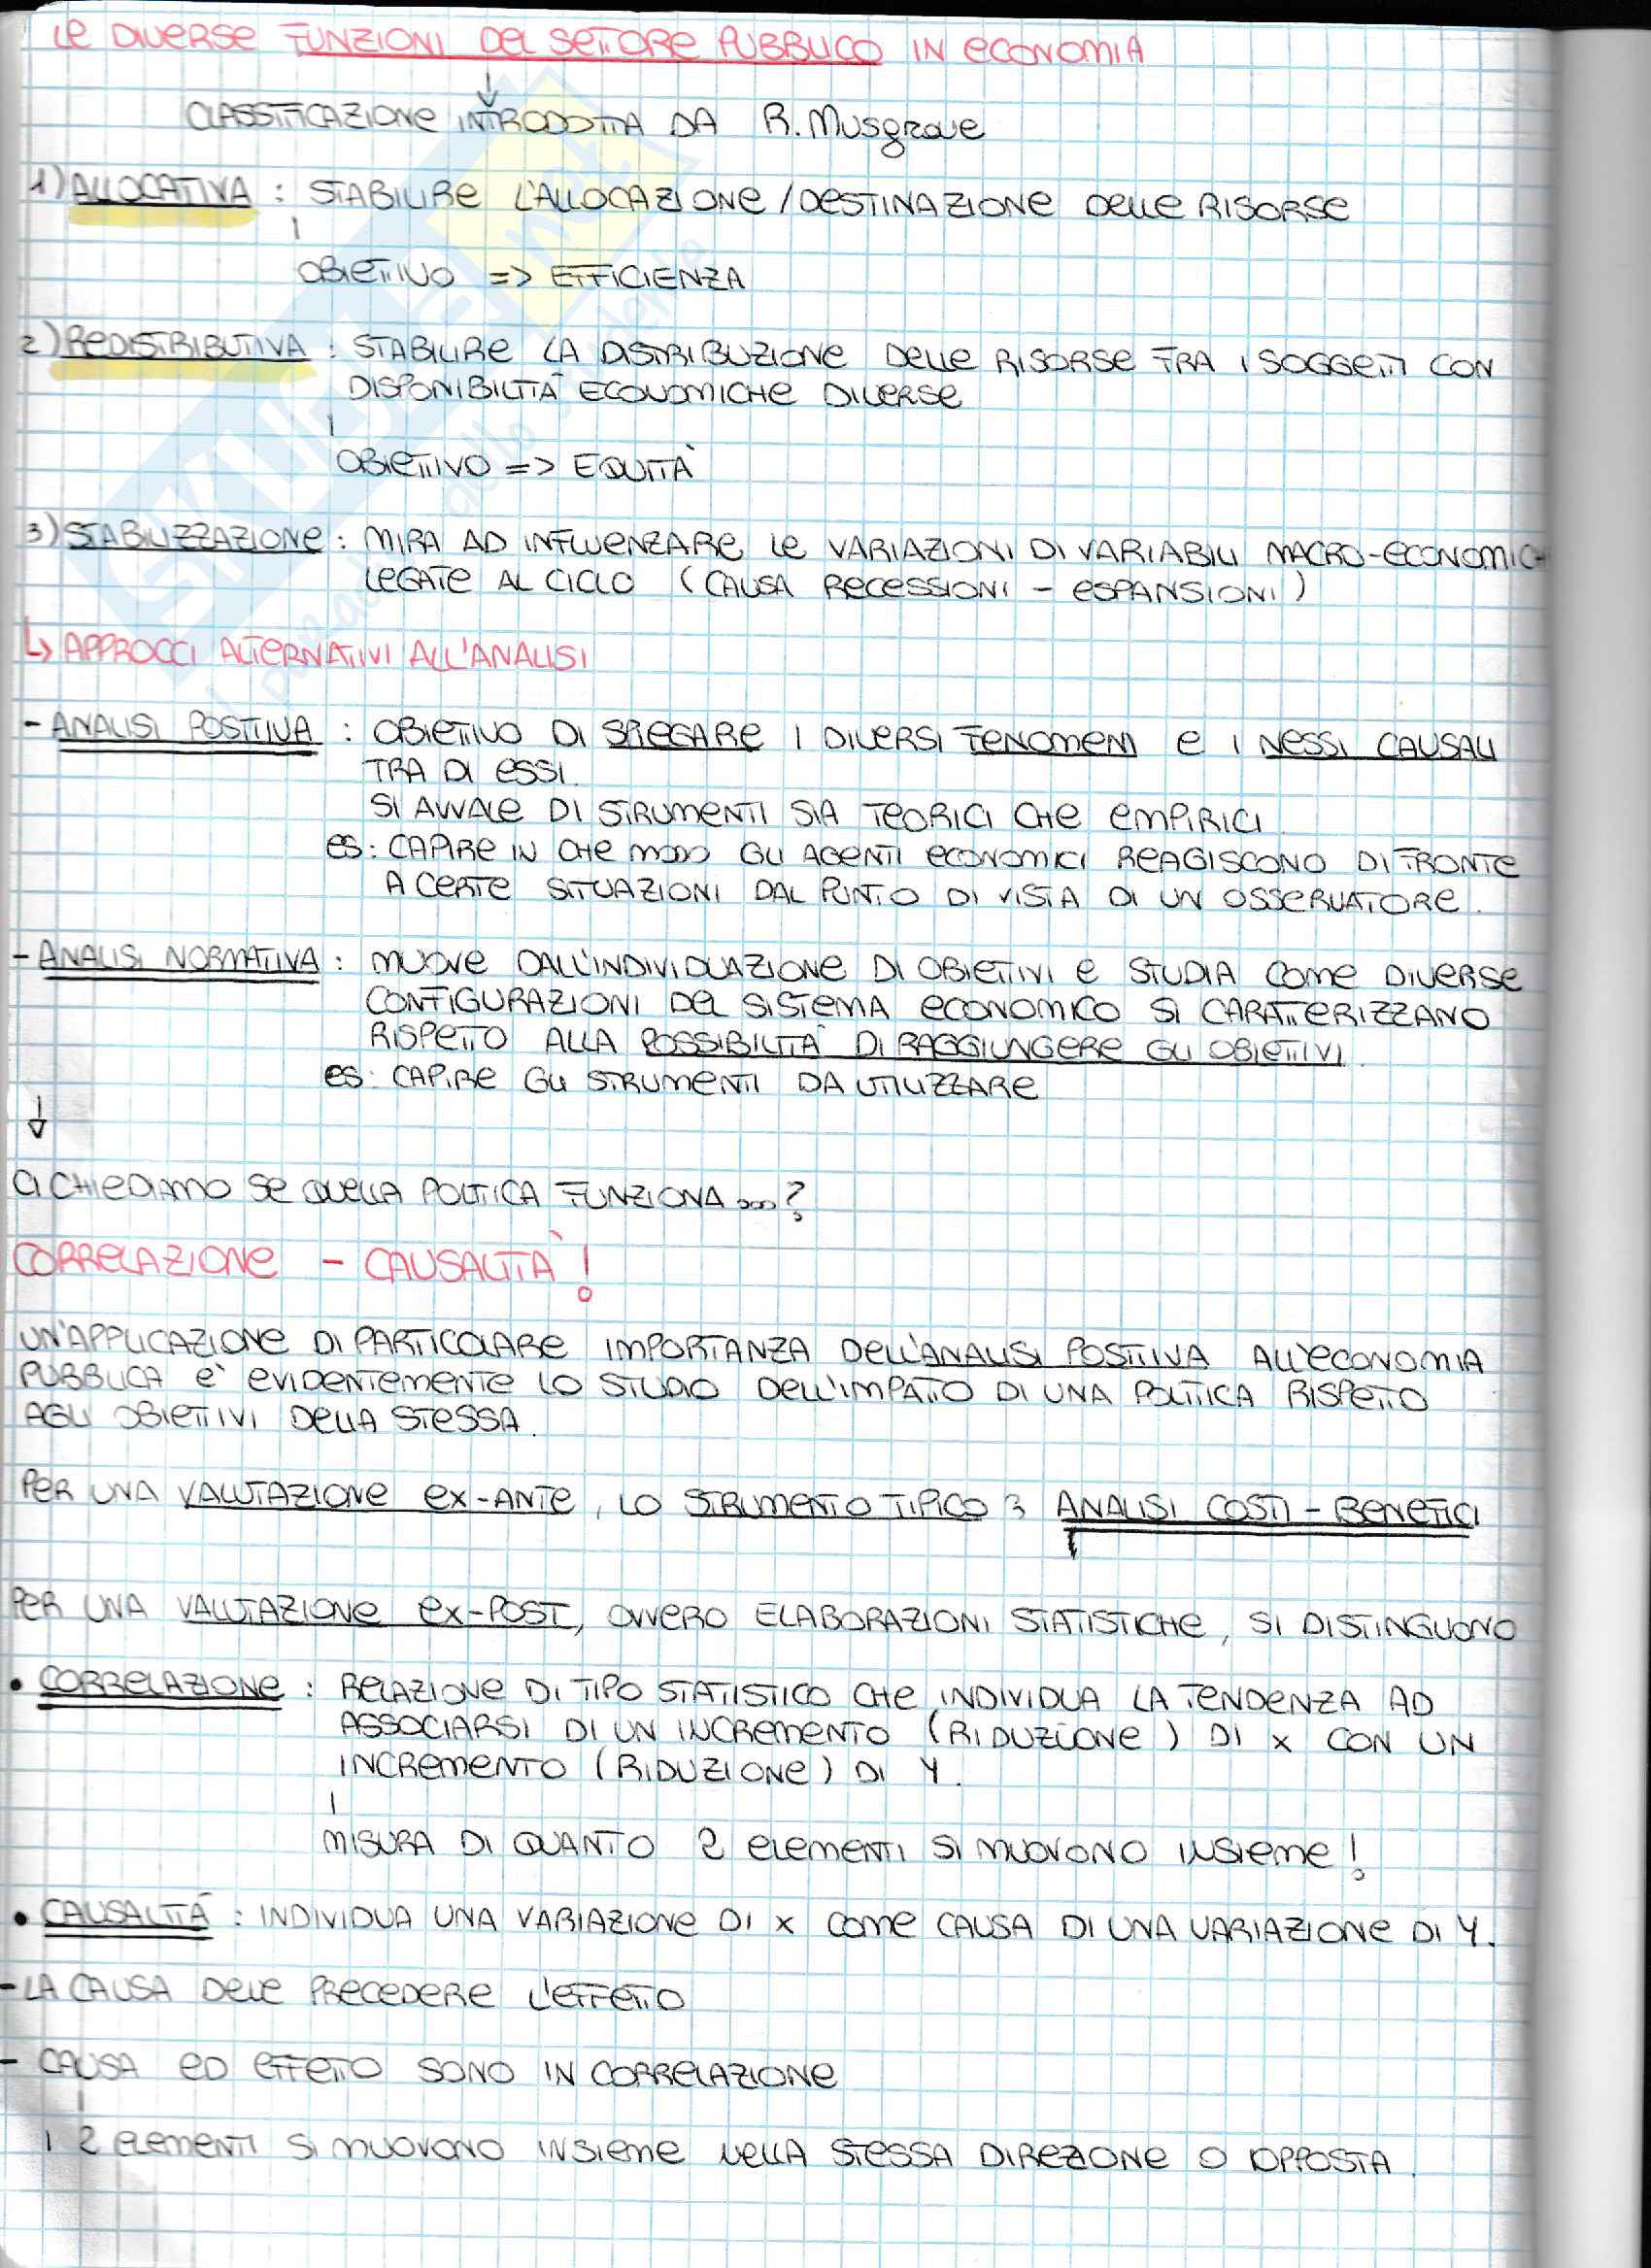 Le DIVERSE FUNZIONI DEL SETTORE PUBBLICO IN ECONOMIA
↓
CLASSIFICAZIONE INTRODOTTA DA R. Musgrave
1) ALLOCATIVA : STABILIRE L'ALLOCAZIONE / DESTINAZIONE DELLE RISORSE
OBIETTIVO => EFFICIENZA
2) REDISTRIBUTIVA : STABILIRE LA DISTRIBUZIONE DELLE RISORSE TRA I SOGGETTI CON
DISPONIBILITÀ ECONOMICHE DIVERSE
OBIETTIVO => EQUITÀ
3) STABILIZZAZIONE : MIRA AD INFLUENZARE LE VARIAZIONI DI VARIABILI MACRO-ECONOMICH
LEGATE AL CICLO (CAUSA RECESSIONI - ESPANSIONI)
↳ APPROCCI ALTERNATIVI ALL'ANALISI
- ANALISI POSITIVA : OBIETTIVO DI SPIEGARE I DIVERSI FENOMENI E I NESSI CAUSALI
TRA DI ESSI.
SI AVVALE DI STRUMENTI SIA TEORICI CHE EMPIRICI.
es: CAPIRE IN CHE MODO GLI AGENTI ECONOMICI REAGISCONO DI FRONTE
A CERTE SITUAZIONI DAL PUNTO DI VISTA DI UN OSSERVATORE.
- ANALISI NORMATIVA : MUOVE DALL'INDIVIDUAZIONE DI OBIETTIVI E STUDIA COME DIVERSE
CONFIGURAZIONI DEL SISTEMA ECONOMICO SI CARATTERIZZANO
RISPETTO ALLA POSSIBILITÀ DI RAGGIUNGERE GLI OBIETTIVI.
es: CAPIRE GLI STRUMENTI DA UTILIZZARE
↓
CI CHIEDIAMO SE QUELLA POLITICA FUNZIONA ...?
CORRELAZIONE - CAUSALITÀ!
UN'APPLICAZIONE DI PARTICOLARE IMPORTANZA DELL'ANALISI POSITIVA ALL'ECONOMIA
PUBBLICA E' EVIDENTEMENTE LO STUDIO DELL'IMPATTO DI UNA POLITICA RISPETTO
AGLI OBIETTIVI DELLA STESSA.
PER UNA VALUTAZIONE EX-ANTE, LO STRUMENTO TIPICO È ANALISI COSTI - BENEFICI
PER UNA VALUTAZIONE EX-POST, OVVERO ELABORAZIONI STATISTICHE, SI DISTINGUONO
• CORRELAZIONE : RELAZIONE DI TIPO STATISTICO CHE INDIVIDUA LA TENDENZA AD
ASSOCIARSI DI UN INCREMENTO (RIDUZIONE) DI X CON UN
INCREMENTO (RIDUZIONE) DI Y.
MISURA DI QUANTO 2 ELEMENTI SI MUOVONO INSIEME!
• CAUSALITÀ : INDIVIDUA UNA VARIAZIONE DI X COME CAUSA DI UNA VARIAZIONE DI Y.
- LA CAUSA DEVE PRECEDERE L'EFFETTO
- CAUSA ED EFFETTO SONO IN CORRELAZIONE
I 2 ELEMENTI SI MUOVONO INSIEME NELLA STESSA DIREZIONE O OPPOSTA.